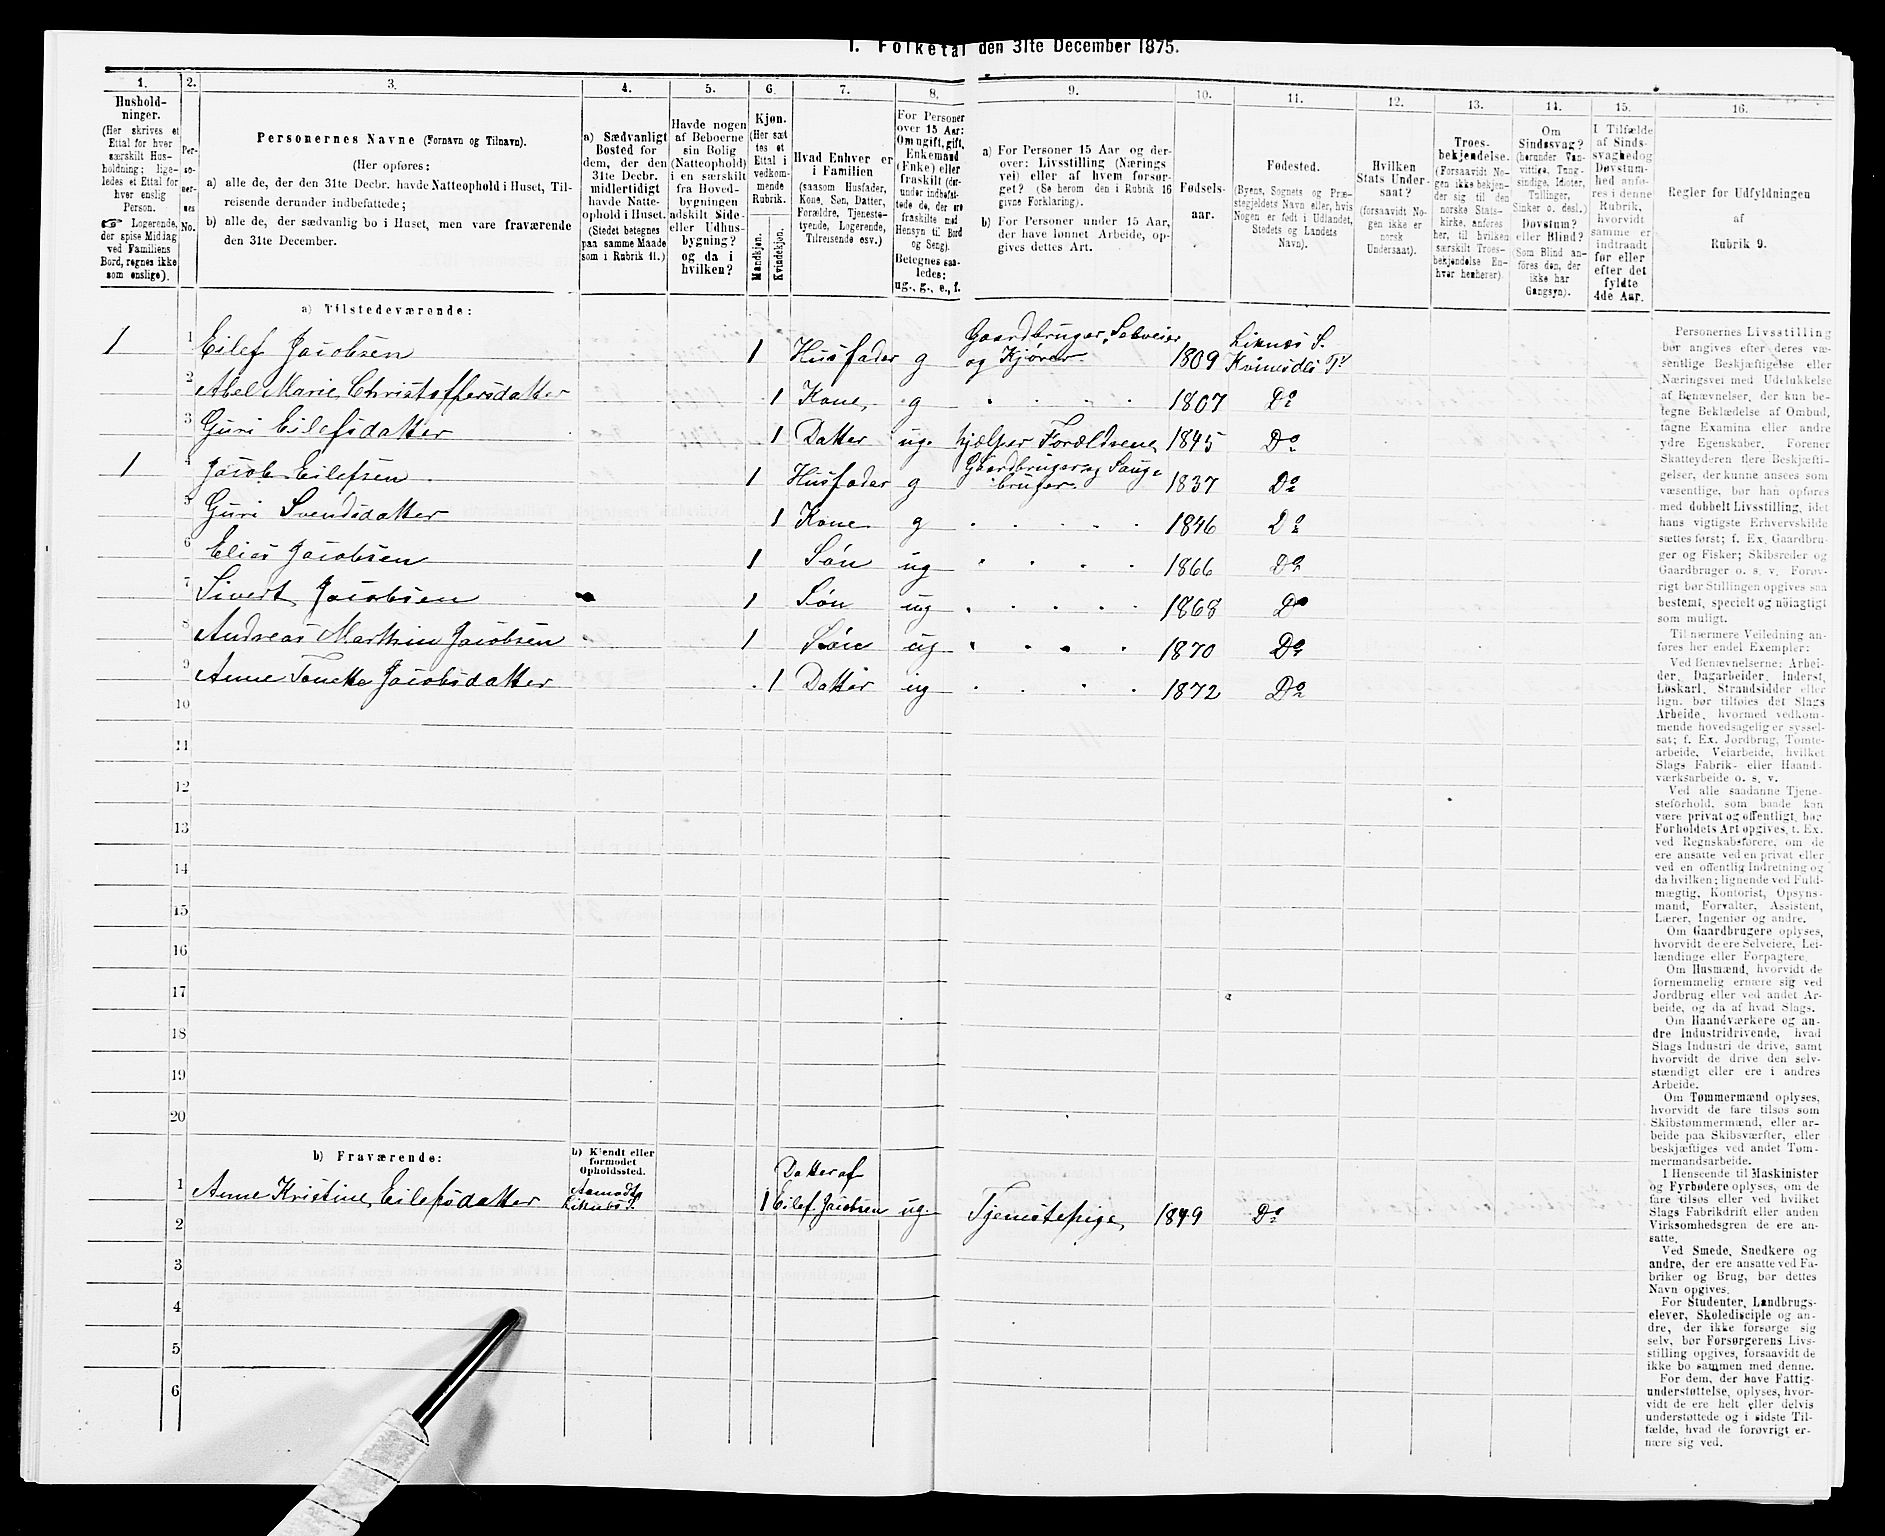 I. Folketal den 31te December 1875.
1. 2. 3. 4. 5. 6. 7. 8. 9. 10. 11. 12. 13. 14. 15. 16.
Hushold-
ninger.
(Her skrives et
Ettal for hver
særskilt Hus-
holdning; lige-
ledes et Ettal for
hver enslig
Person.
☞ Logerende,
der spise Middag
ved Familiens
Bord, regnes ikke
som enslige).
Per-
so-
ner-
nes
No.
Personernes Navne (Fornavn og Tilnavn).
(Her opføres:
a) alle de, der den 31te Decbr. havde Natteophold i Huset, Til-
reisende derunder indbefattede;
b) alle de, der sædvanlig bo i Huset, men vare fraværende
den 31te December.
a) Sædvanligt
Bosted for
dem, der den
31te Decbr.
midlertidigt
havde Natte-
ophold i Huset.
(Stedet betegnes
paa samme Maade
som i Rubrik 11.)
Havde nogen
af Beboerne
sin Bolig
(Natteophold)
i en særskilt
fra Hoved-
bygningen
adskilt Side-
eller Udhus-
bygning?
og da i
hvilken?
Kjøn.
(Her sæt
tes et
Ettal i
vedkom-
mende
Rubrik.
Mandkjøn.
Kvindekjøn.
Hvad Enhver er
i Familien
(saasom Husfader,
Kone, Søn, Datter,
Forældre, Tjeneste-
tyende, Logerende,
Tilreisende osv.)
For Personer
over 15 Aar:
Om ugift, gift,
Enkemand
(Enke) eller
fraskilt (der-
under indbefat-
tede de, der ere
fraskilte med
Hensyn til Bord
og Seng).
Betegnes saa-
ledes:
ug., g., e., f.
a) For Personer 15 Aar og der-
over: Livsstilling (Nærings
vei) eller af hvem forsør-
get? (Se herom den i Rubrik 16
givne Forklaring).
b) For Personer under 15 Aar,
der have lønnet Arbeide, op-
gives dettes Art.
Fødsels-
aar.
Fødested.
(Byens, Sognets og Præ-
stegjeldets Navn eller, hvis
Nogen er født i Udlandet,
Stedets og Landets
Navn).
Hvilken
Stats Under-
saat?
(forsaavidt No-
gen ikke er
norsk
Undersaat).
Troes-
bekjendelse.
(Forsaavidt No-
gen ikke bekjen-
der sig til den
norske Stats-
kirke, anføres
her, til hvilken
særskilt Troes-
bekjendelse En-
hver henhører).
Om
Sindssvag?
(herunder Van-
vittige, Tung-
sindige, Idioter,
Tullinger,
Sinker o. desl.)
Døvstum?
eller Blind?
(Som Blind an-
føres den, der
ikke har
Gangsyn).
I Tilfælde
af Sinds-
svaghed og
Døvstum-
hed anfø-
res i denne
Rubrik,
hvorvidt
samme er
indtraadt
før eller
efter det
fyldte
4de Aar.
Regler for Udfyldningen
af
Rubrik 9.
a) Tilstedeværende:
1 1 Eilef Jacobsen 1 Husfader g Gaardbruger, Selveier og Kjører 1809 Liknæs S. Kvinesdal
2 Abel Marie Christoffersdatter 1 Kone g 1807 Do
3 Guri Eilefsdatter 1 Datter ug. hjælper Forældrene 1845 Do
1 4 Jacob Eilefsen 1 Husfader g Gaardbruger og Saugbruger 1837 Do
5 Guri Svendsdatter 1 Kone g 1846 Do
6 Elias Jacobsen 1 Søn ug 1866 Do
7 Sivert Jacobsen 1 Søn ug 1868 Do
8 Andreas Marthin Jacobsen 1 Søn ug 1870 Do
9 Anne Tonette Jacobsdatter 1 Datter ug 1872 Do
10
11
12
13
14
15
16
17
18
19
20
b) Fraværende:
b) Kjendt eller
formodet
Opholdssted.
1 Anne Kristine Eilefsdatter 1 Datter af Eilef Jacobsen ug. Tjenstepige 1849 Do
2
3
4
5
6
Personernes Livsstilling
bør angives efter deres væ-
sentlige Beskjæftigelse eller
Næringsvei med Udelukkelse
af Benævnelser, der kun be-
tegne Beklædelse af Ombud,
tagne Examina eller andre
ydre Egenskaber. Forener
Skatteyderen flere Beskjæfti-
gelser, der kunne ansees som
væsentlige, bør han opføres
med dobbelt Livsstilling, idet
hans vigtigste Erhvervskilde
sættes først; f. Ex. Gaardbru-
ger og Fisker; Skibsreder og
Gaardbruger o. s. v. Forøv-
rigt bør Stillingen opgives saa
bestemt, specielt og nøiagtigt
som muligt.
Til nærmere Veiledning an-
føres her endel Exempler:
Ved Benævnelserne: Arbei-
der, Dagarbeider, Inderst,
Løskarl, Strandsidder eller
lign. bør tilføies det Slags
Arbeide, hvormed vedkom-
mende hovedsagelig er syssel-
sat; f. Ex. Jordbrug, Tomte-
arbeide, Veiarbeide, hvilket
Slags Fabrik- eller Haand-
værksarbeide o. s. v.
Ved alle saadanne Tjene-
steforhold, som baade kan
være privat og offentligt, bør
Forholdets Art opgives, t. Ex.
ved Regnskabsførere, om de
ere ansatte ved en privat eller
ved en offentlig Indretning og
da hvilken; lignende ved Fuld-
mægtig, Kontorist, Opsyns-
mand, Forvalter, Assistent,
Lærer, Ingeniør og andre.
Om Gaardbrugere oplyses,
hvorvidt de ere Selveiere, Lei-
lændinge eller Forpagtere.
Om Husmænd, hvorvidt de
fornemmelig ernære sig ved
Jordbrug eller ved andet Ar-
beide, og da af hvad Slags.
Om Haandværkere og an-
dre Industridrivende, hvad
Slags Industri de drive, samt
hvorvidt de drive den selv-
stændigt eller ere i andres
Arbeide.
Om Tømmermænd oplyses,
hvorvidt de fare tilsøs som
Skibstømmermænd, eller ar-
beide paa Skibsværfter, eller
beskjæftiges ved andet Tøm-
mermandsarbeide.
I Henseende til Maskinister
og Fyrbødere oplyses, om de
fare tilsøs eller ved hvilket
Slags Fabrikdrift eller anden
Virksomhedsgren de ere an-
satte.
Ved Smede, Snedkere og
andre, der ere ansatte ved Fa-
briker og Brug, bør dettes
Navn opgives.
For Studenter, Landbrugs-
elever, Skoledisciple og an-
dre, der ikke forsørge sig
selv, bør Forsørgerens Livs-
stilling opgives, forsaavidt de
ikke bo sammen med denne.
For dem, der have Fattig-
understøttelse, oplyses, hvor-
vidt de ere helt eller delvis
understøttede og i sidste Til-
fælde, hvad de forøvrigt er-
nære sig ved.